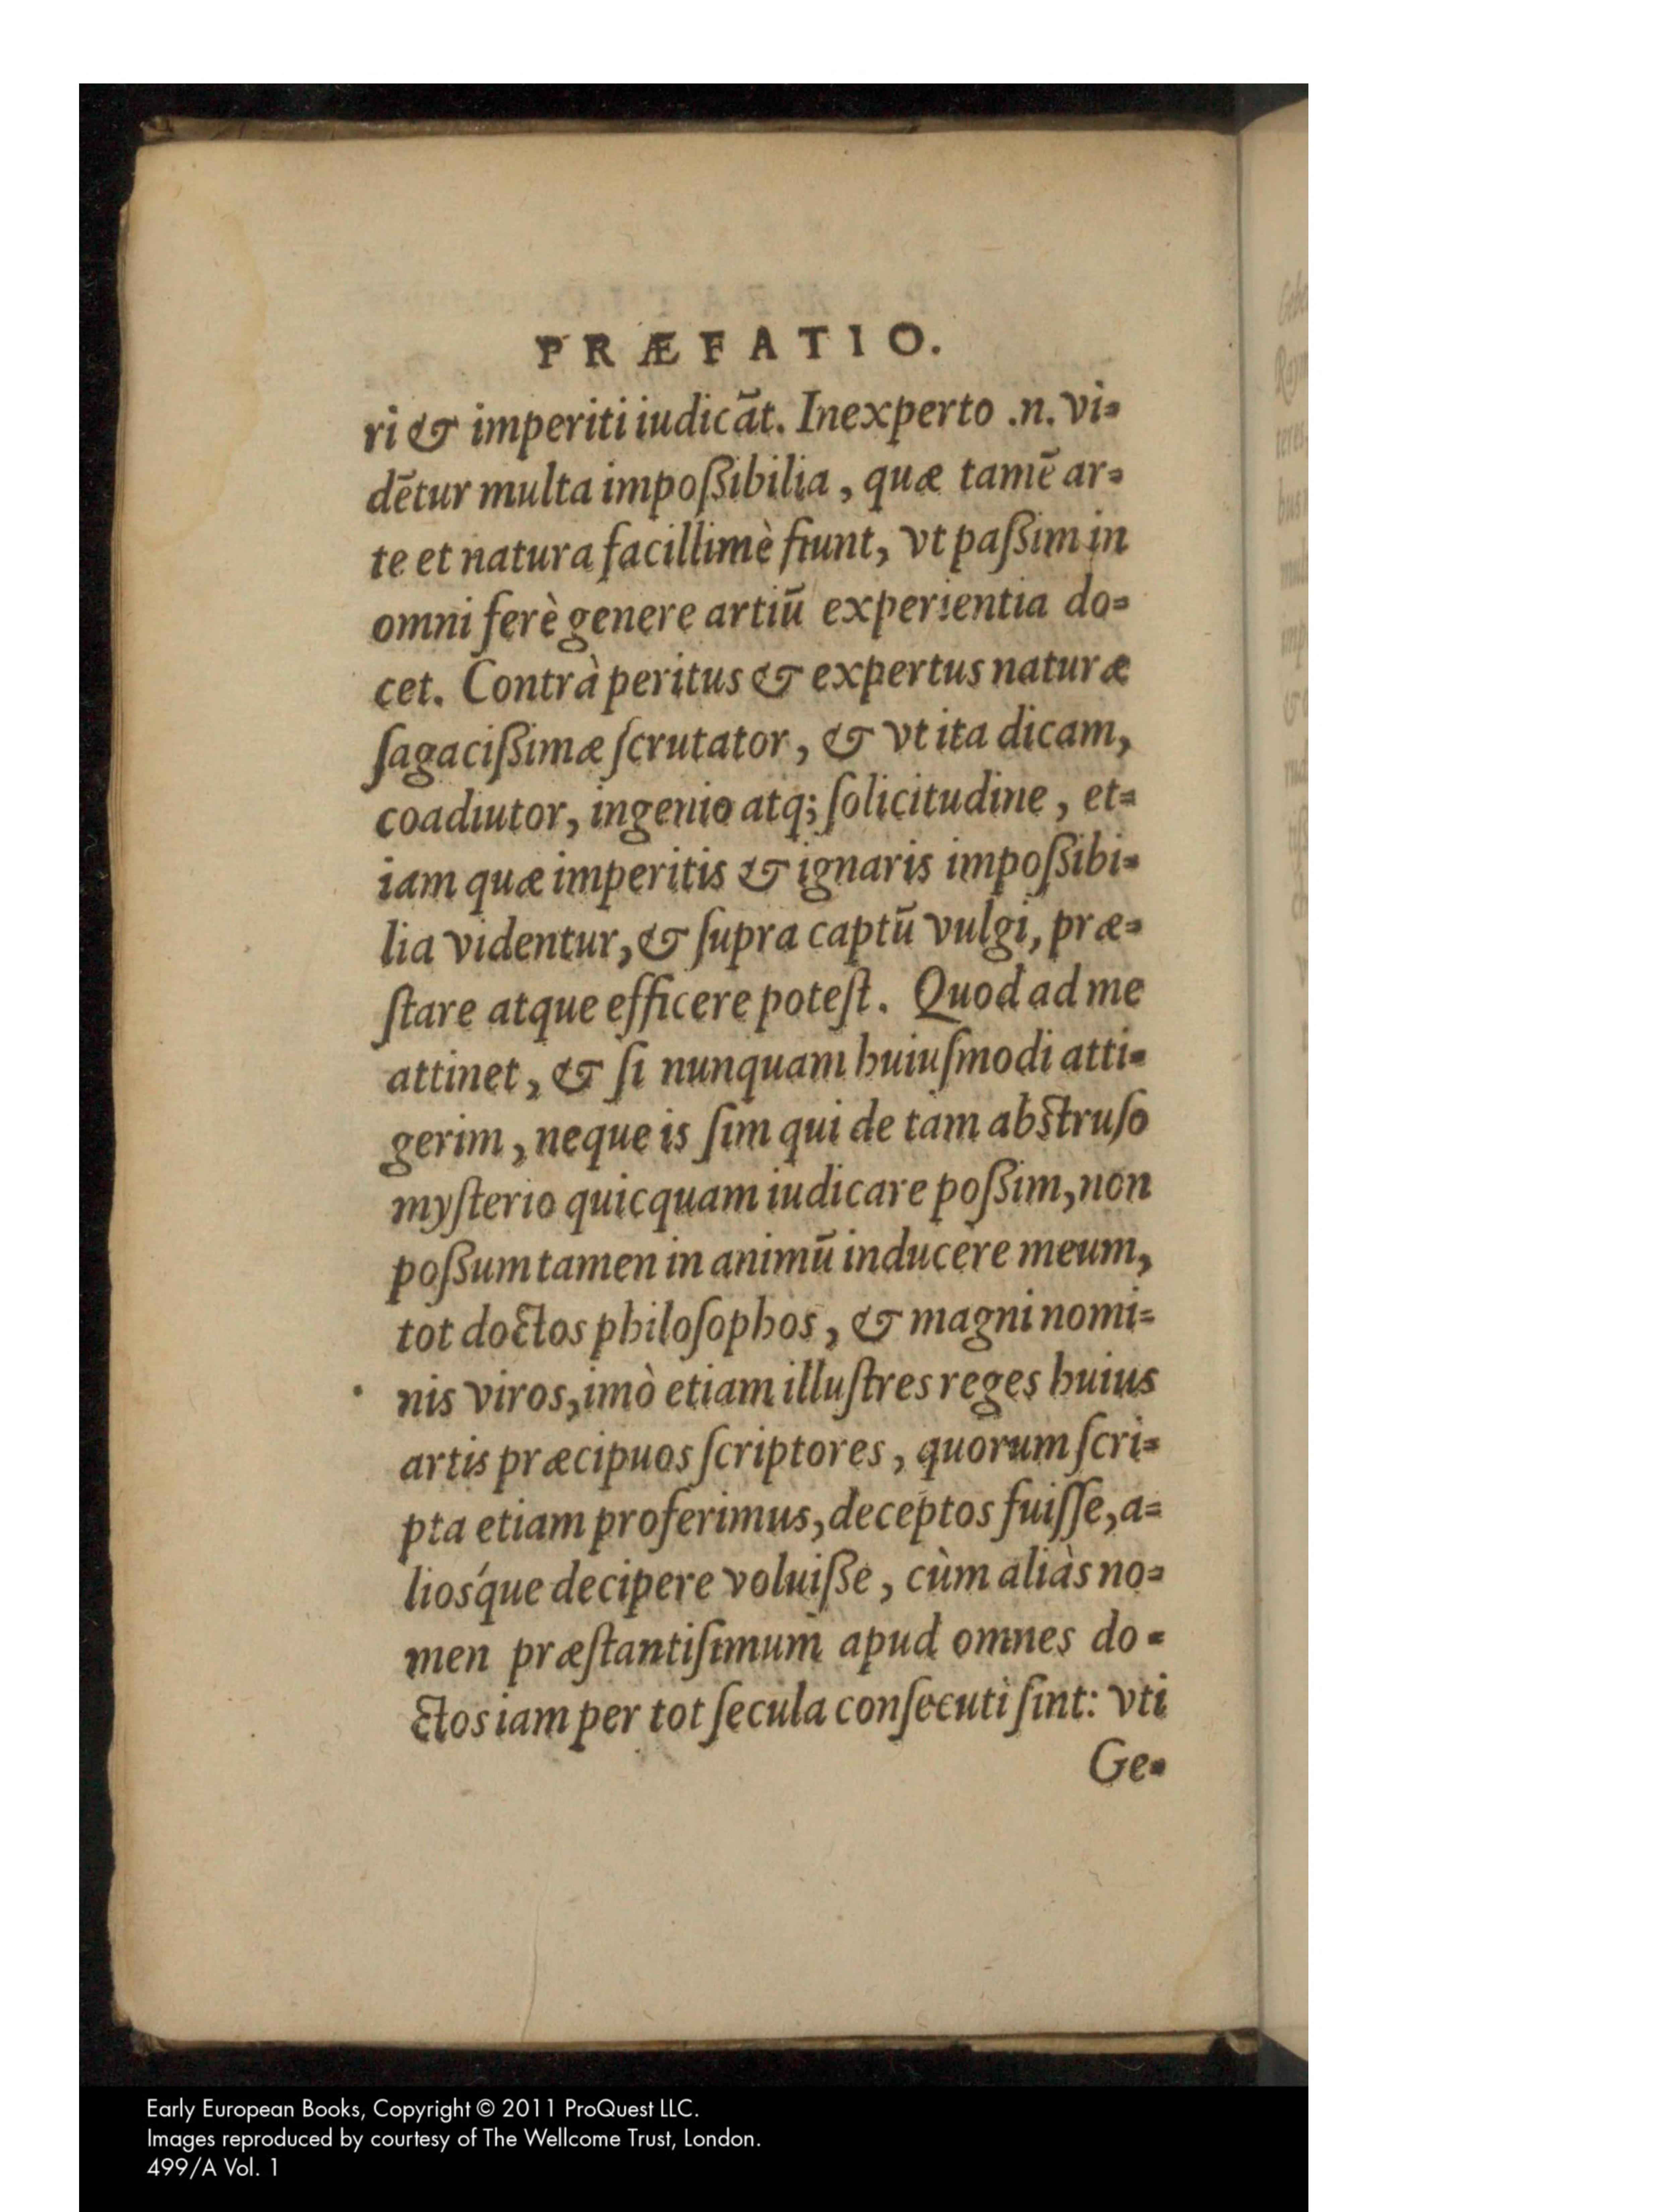 PRÆFATIO.
ri & imperiti iudicāt. Inexperto .n. vi=
dētur multa impoſsibilia, quæ tamē ar=
te et natura facillimè fiunt, vt paſsim in
omni ferè genere artiū experientia do=
cet. Contrà peritus & expertus naturæ
ſagaciſsimæ ſcrutator, & vt ita dicam,
coadiutor, ingenio atq; ſolicitudine, et=
iam quæ imperitis & ignaris impoſsibi=
lia videntur, & ſupra captū vulgi, præ=
ſtare atque efficere poteſt. Quod ad me
attinet, & ſi nunquam huiuſmodi atti=
gerim, neque is ſim qui de tam abſtruſo
myſterio quicquam iudicare poſsim, non
poſsum tamen in animū inducere meum,
tot doctos philoſophos, & magni nomi=
nis viros, imò etiam illuſtres reges huius
artis præcipuos ſcriptores, quorum ſcri=
pta etiam proferimus, deceptos fuiſſe, a=
liosq́ue decipere voluiſse, cùm aliàs no=
men præſtantiſimum apud omnes do=
ctos iam per tot ſecula conſecuti ſint: vti
Ge=
Early European Books, Copyright © 2011 ProQuest LLC.
Images reproduced by courtesy of The Wellcome Trust, London.
499/A Vol. 1